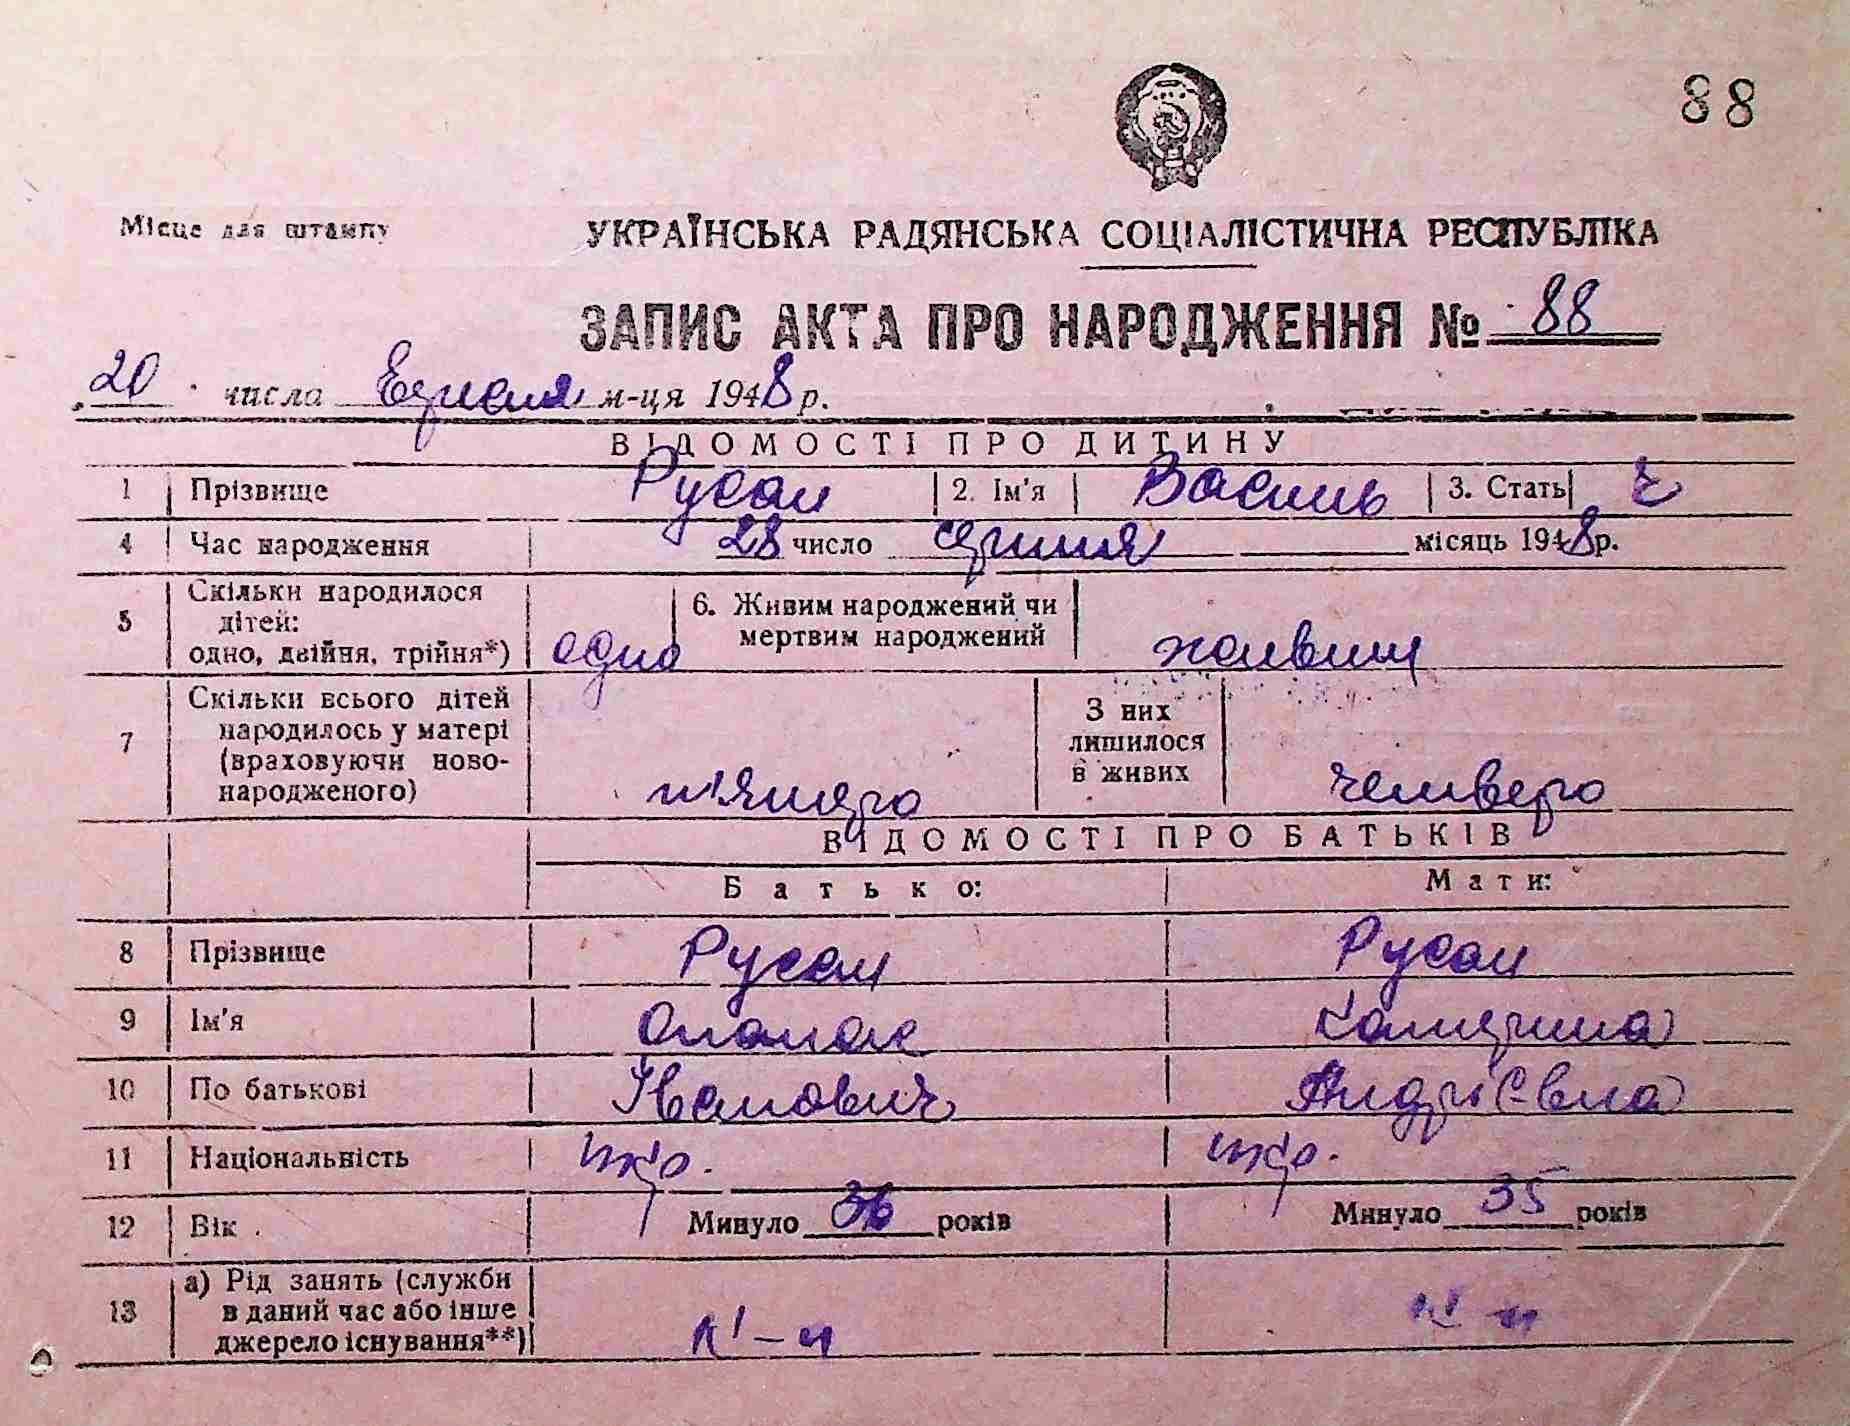 88
Місце для штампу
УКРАЇНСЬКА РАДЯНСЬКА СОЦІАЛІСТИЧНА РЕСПУБЛІКА
ЗАПИС АКТА ПРО НАРОДЖЕННЯ № 88
20 числа м-ця 1948 р.
ВІДОМОСТІ ПРО ДИТИНУ
1 Прізвище Русан 2. Ім'я Василь 3. Стать ч
4 Час народження 28 число серпня місяць 1948 р.
5 Скільки народилося дітей: одно, двійня, трійня*) одно 6. Живим народжений чи мертвим народжений живим
7 Скільки всього дітей народилось у матері (враховуючи ново-народженого) п'ятеро З них лишилося в живих четверо
ВІДОМОСТІ ПРО БАТЬКІВ
Батько: Мати:
8 Прізвище Русан Русан
9 Ім'я Опанас Катерина
10 По батькові Іванович Андріївна
11 Національність укр. укр.
12 Вік . Минуло 36 років Минуло 35 років
13 а) Рід занять (служби в даний час або інше джерело існування**) к-к к-к